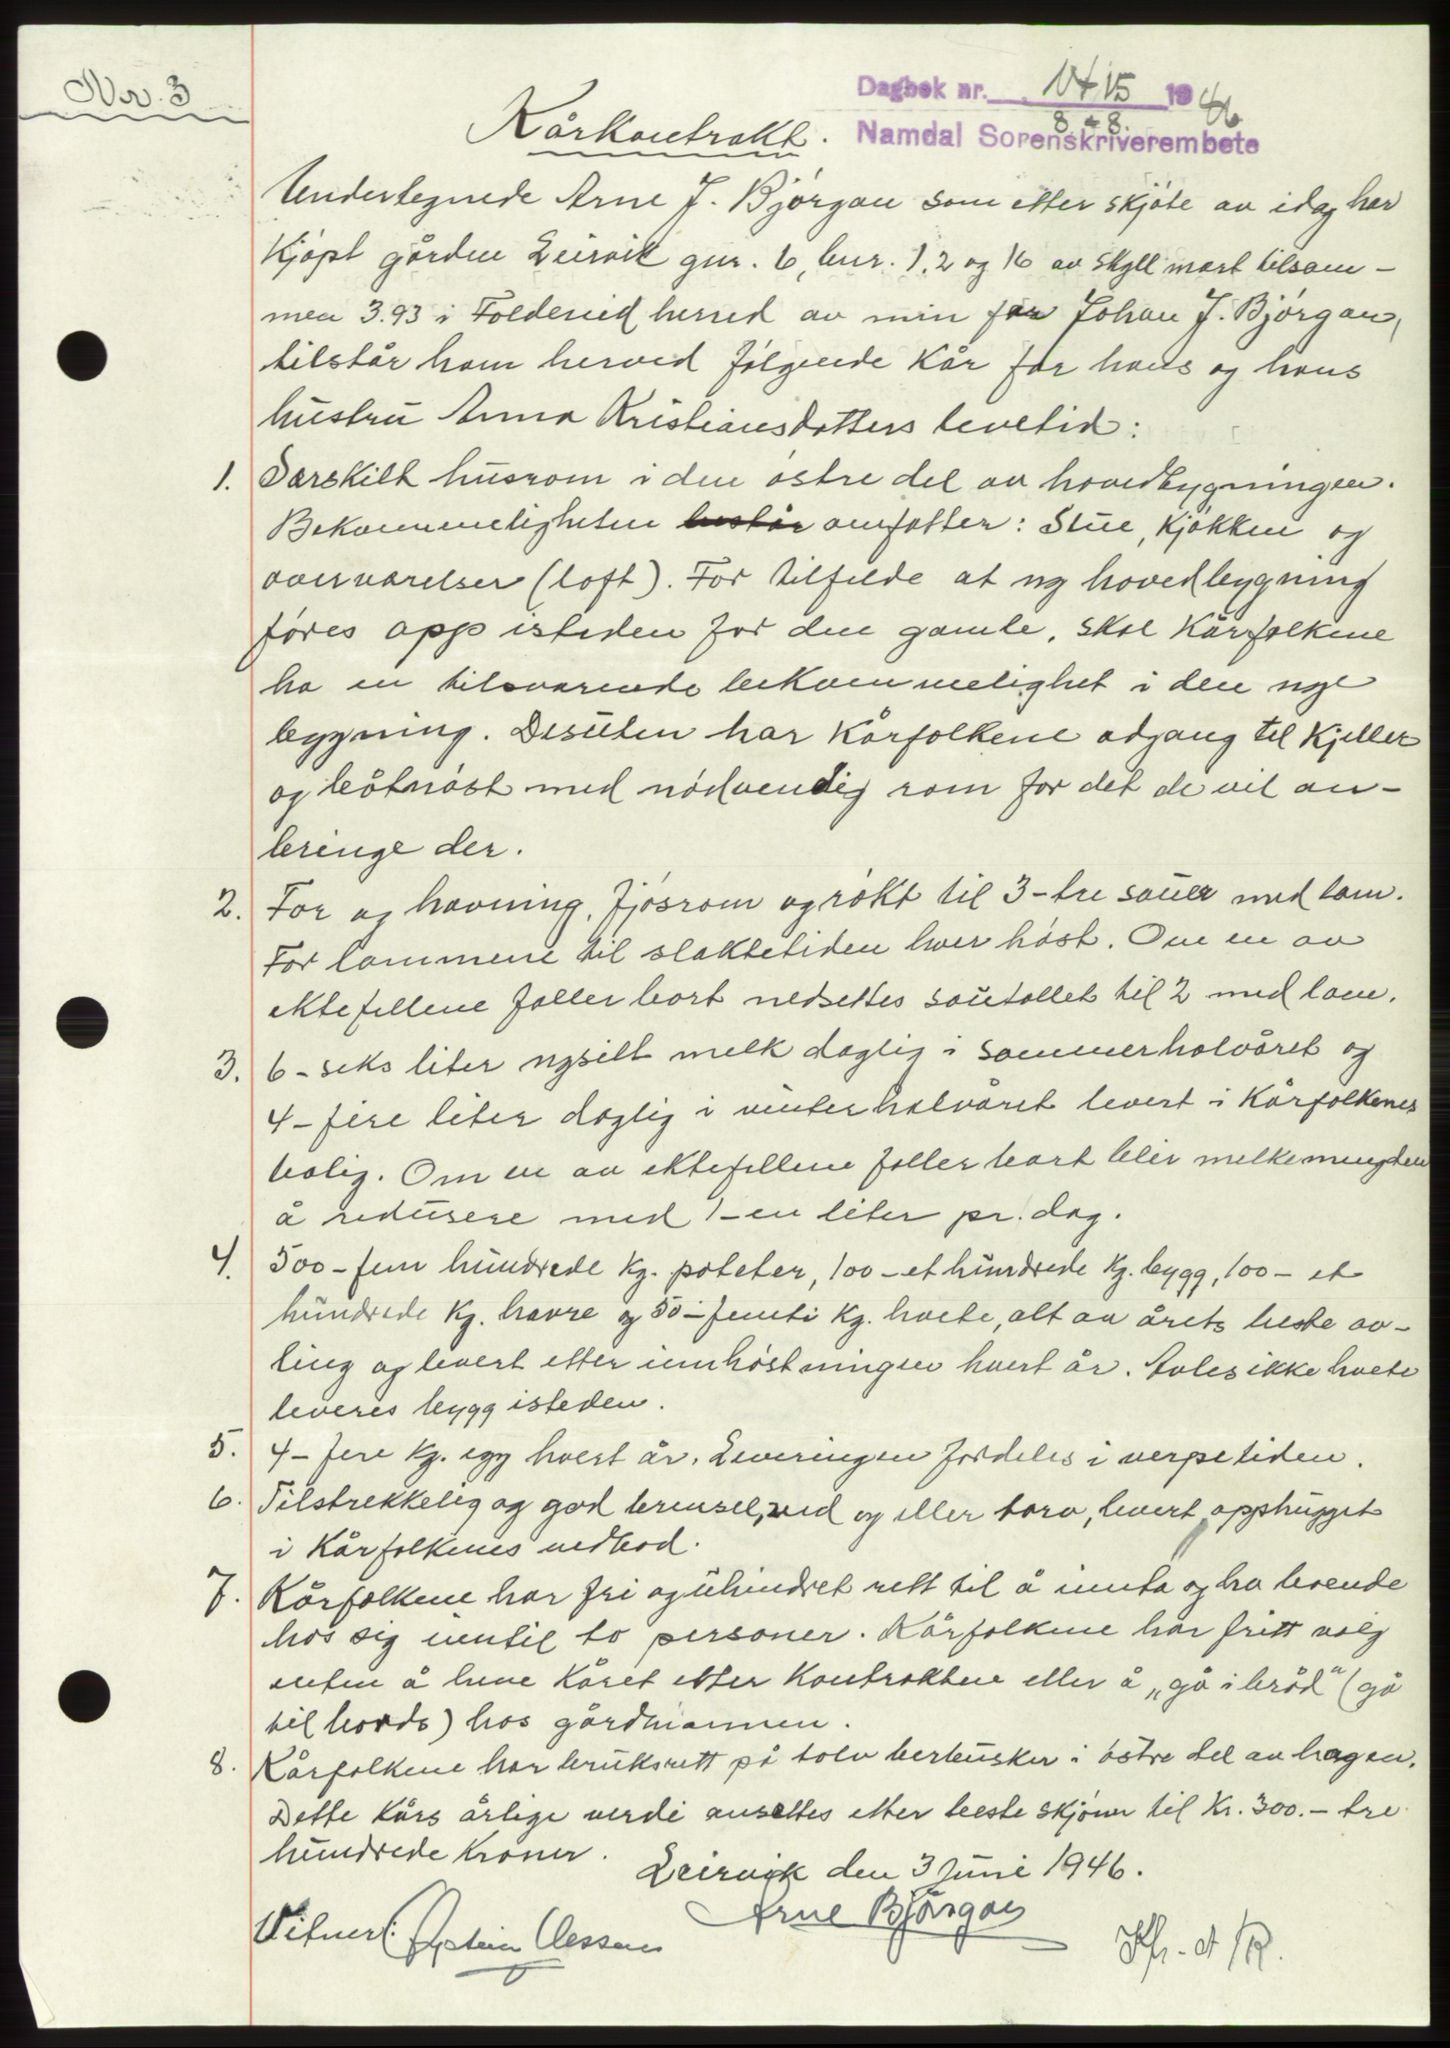 Nr. 3
Dagbok nr. 1415 1946
8-8.
Namdal Sorenskriverembete
Kårkontrakt.
Undertegnede Arne J. Bjørgan som etter skjøte av idag har
kjøpt gården Leirvik gnr. 6, bnr. 1, 2 og 16 av skyll mark tilsam-
men 3.93 i Foldereid herred av min far Johan J. Bjørgan,
tilstår ham herved følgende kår for hans og hans
hustru Anna Kristiansdatters levetid:
1. Særskilt husrom i den østre del av hovedbygningen.
Bekvemmeligheten består omfatter: Stue, kjøkken og
overværelser (loft). For tilfelde at ny hovedbygning
føres opp isteden for den gamle, skal kårfolkene
ha en tilsvarende bekvemmelighet i den nye
bygning. Desuten har kårfolkene adgang til kjeller
og båtnøst med nødvendig rom for det de vil an-
bringe der.
2. For og havning, fjøsrom og røkt til 3-tre sauer med lam.
For lammene til slaktetiden hver høst. Om en av
ektefellene faller bort nedsettes sautallet til 2 med lam.
3. 6-seks liter nysilt melk daglig i sommerhalvåret og
4-fire liter daglig i vinterhalvåret levert i kårfolkenes
bolig. Om en av ektefellene faller bort blir melkemengden
å redusere med 1-en liter pr. dag.
4. 500-fem hundrede kg. poteter, 100-et hundrede kg. bygg, 100-et
hundrede kg. havre og 50-femti kg. hvete, alt av årets beste av-
ling og levert etter innhøstningen hvert år. Avles ikke hvete
leveres bygg isteden.
5. 4-fire kg. egg hvert år. Leveringen fordeles i verpetiden.
6. Tilstrekkelig og god brensel, ved og eller torv, levert opphugget
i kårfolkenes vedbod.
7. Kårfolkene har fri og uhindret rett til å innta og ha boende
hos sig inntil to personer. Kårfolkene har fritt valg
enten å heve kåret etter kontrakten eller å „gå i brød“ (gå
til bords) hos gårdmannen.
8. Kårfolkene har bruksrett på tolv bærbusker i østre del av hagen.
Dette kårs årlige verdi ansettes etter beste skjønn til kr. 300.- tre
hundrede kroner.
Leirvik den 3 Juni 1946.
Arne Bjørgan
Vitner: